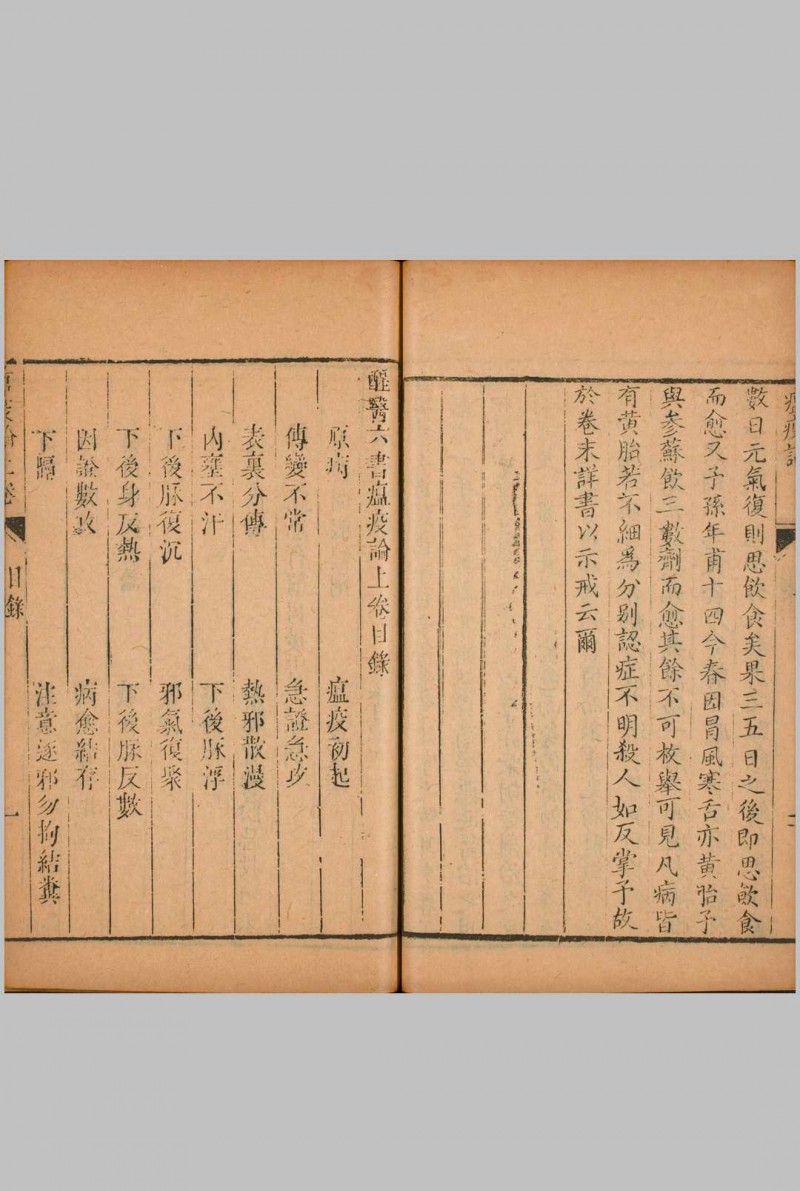 數日元氣復則思飲食矣果三五日之後即思飲食
而愈又子孫年甫十四今春因冒風寒舌亦黃胎予
與參蘇飲三數劑而愈其餘不可枚舉可見凡病皆
有黃胎若不細爲分别認症不明殺人如反掌予故
於卷末詳書以示戒云爾
醒醫六書瘟疫論上卷目錄
原病　瘟疫初起
傳變不常　急證急攻
表裏分傳　熱邪散漫
內壅不汗　下後脉浮
下後脉復沉　邪氣復聚
下後身反熱　下後脉反數
因證數攻　病愈結存
下隔　注意逐邪勿拘結糞
目錄　一